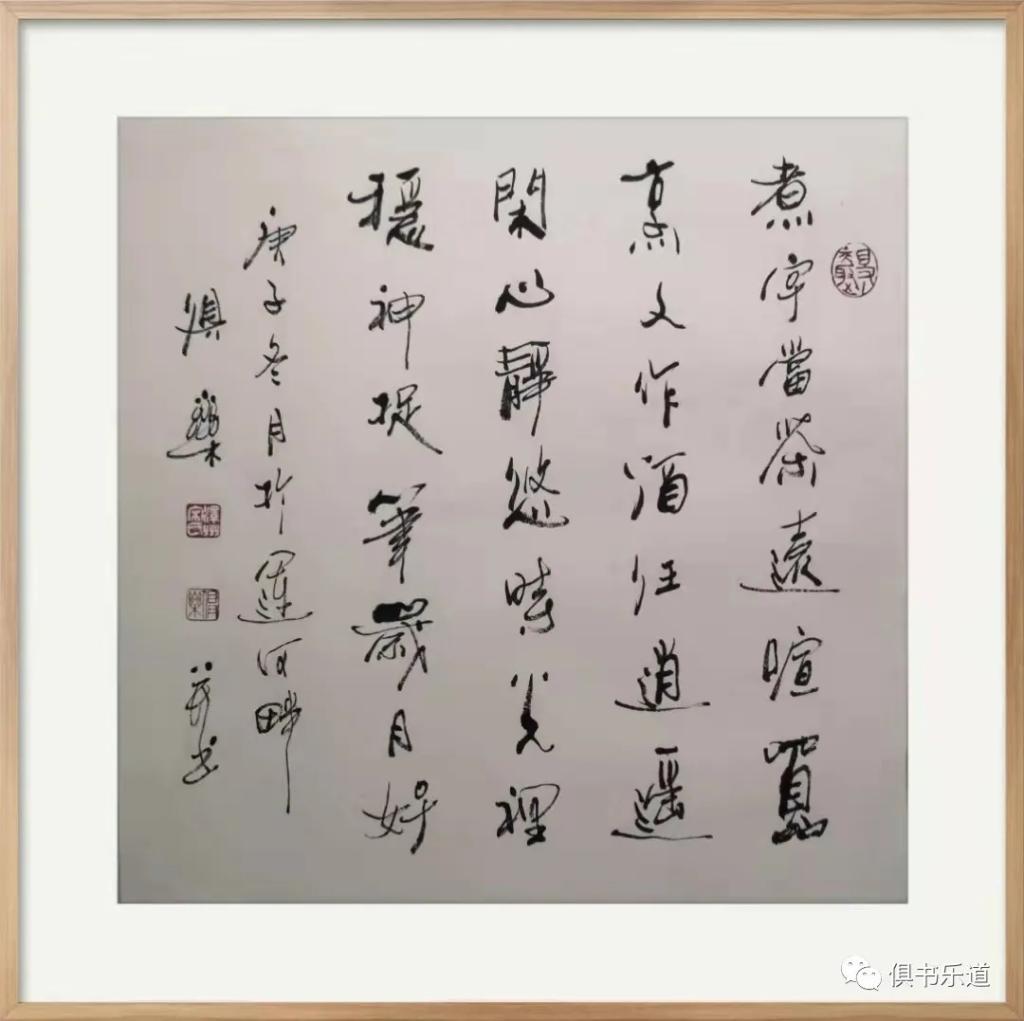 煮字當茶遠喧囂
烹文作酒任逍遥
閑心靜悠時光裡
穩神捉筆歲月好
庚子冬月於運河畔
俱樂
并书
俱书乐道